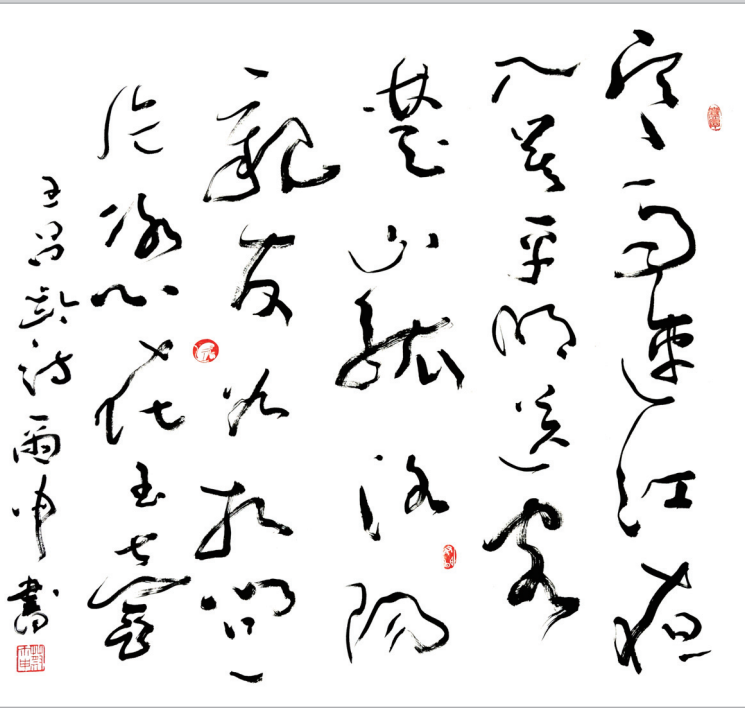 寒雨連江夜
入吳平明送客
楚山孤洛陽
親友如相問一
片冰心在玉壺
王昌齡詩雨申書